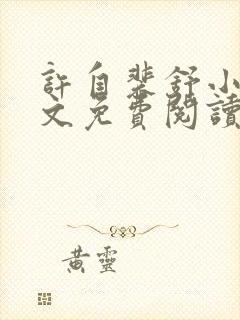 許自斐舒小
文免費閱讀
黃靈